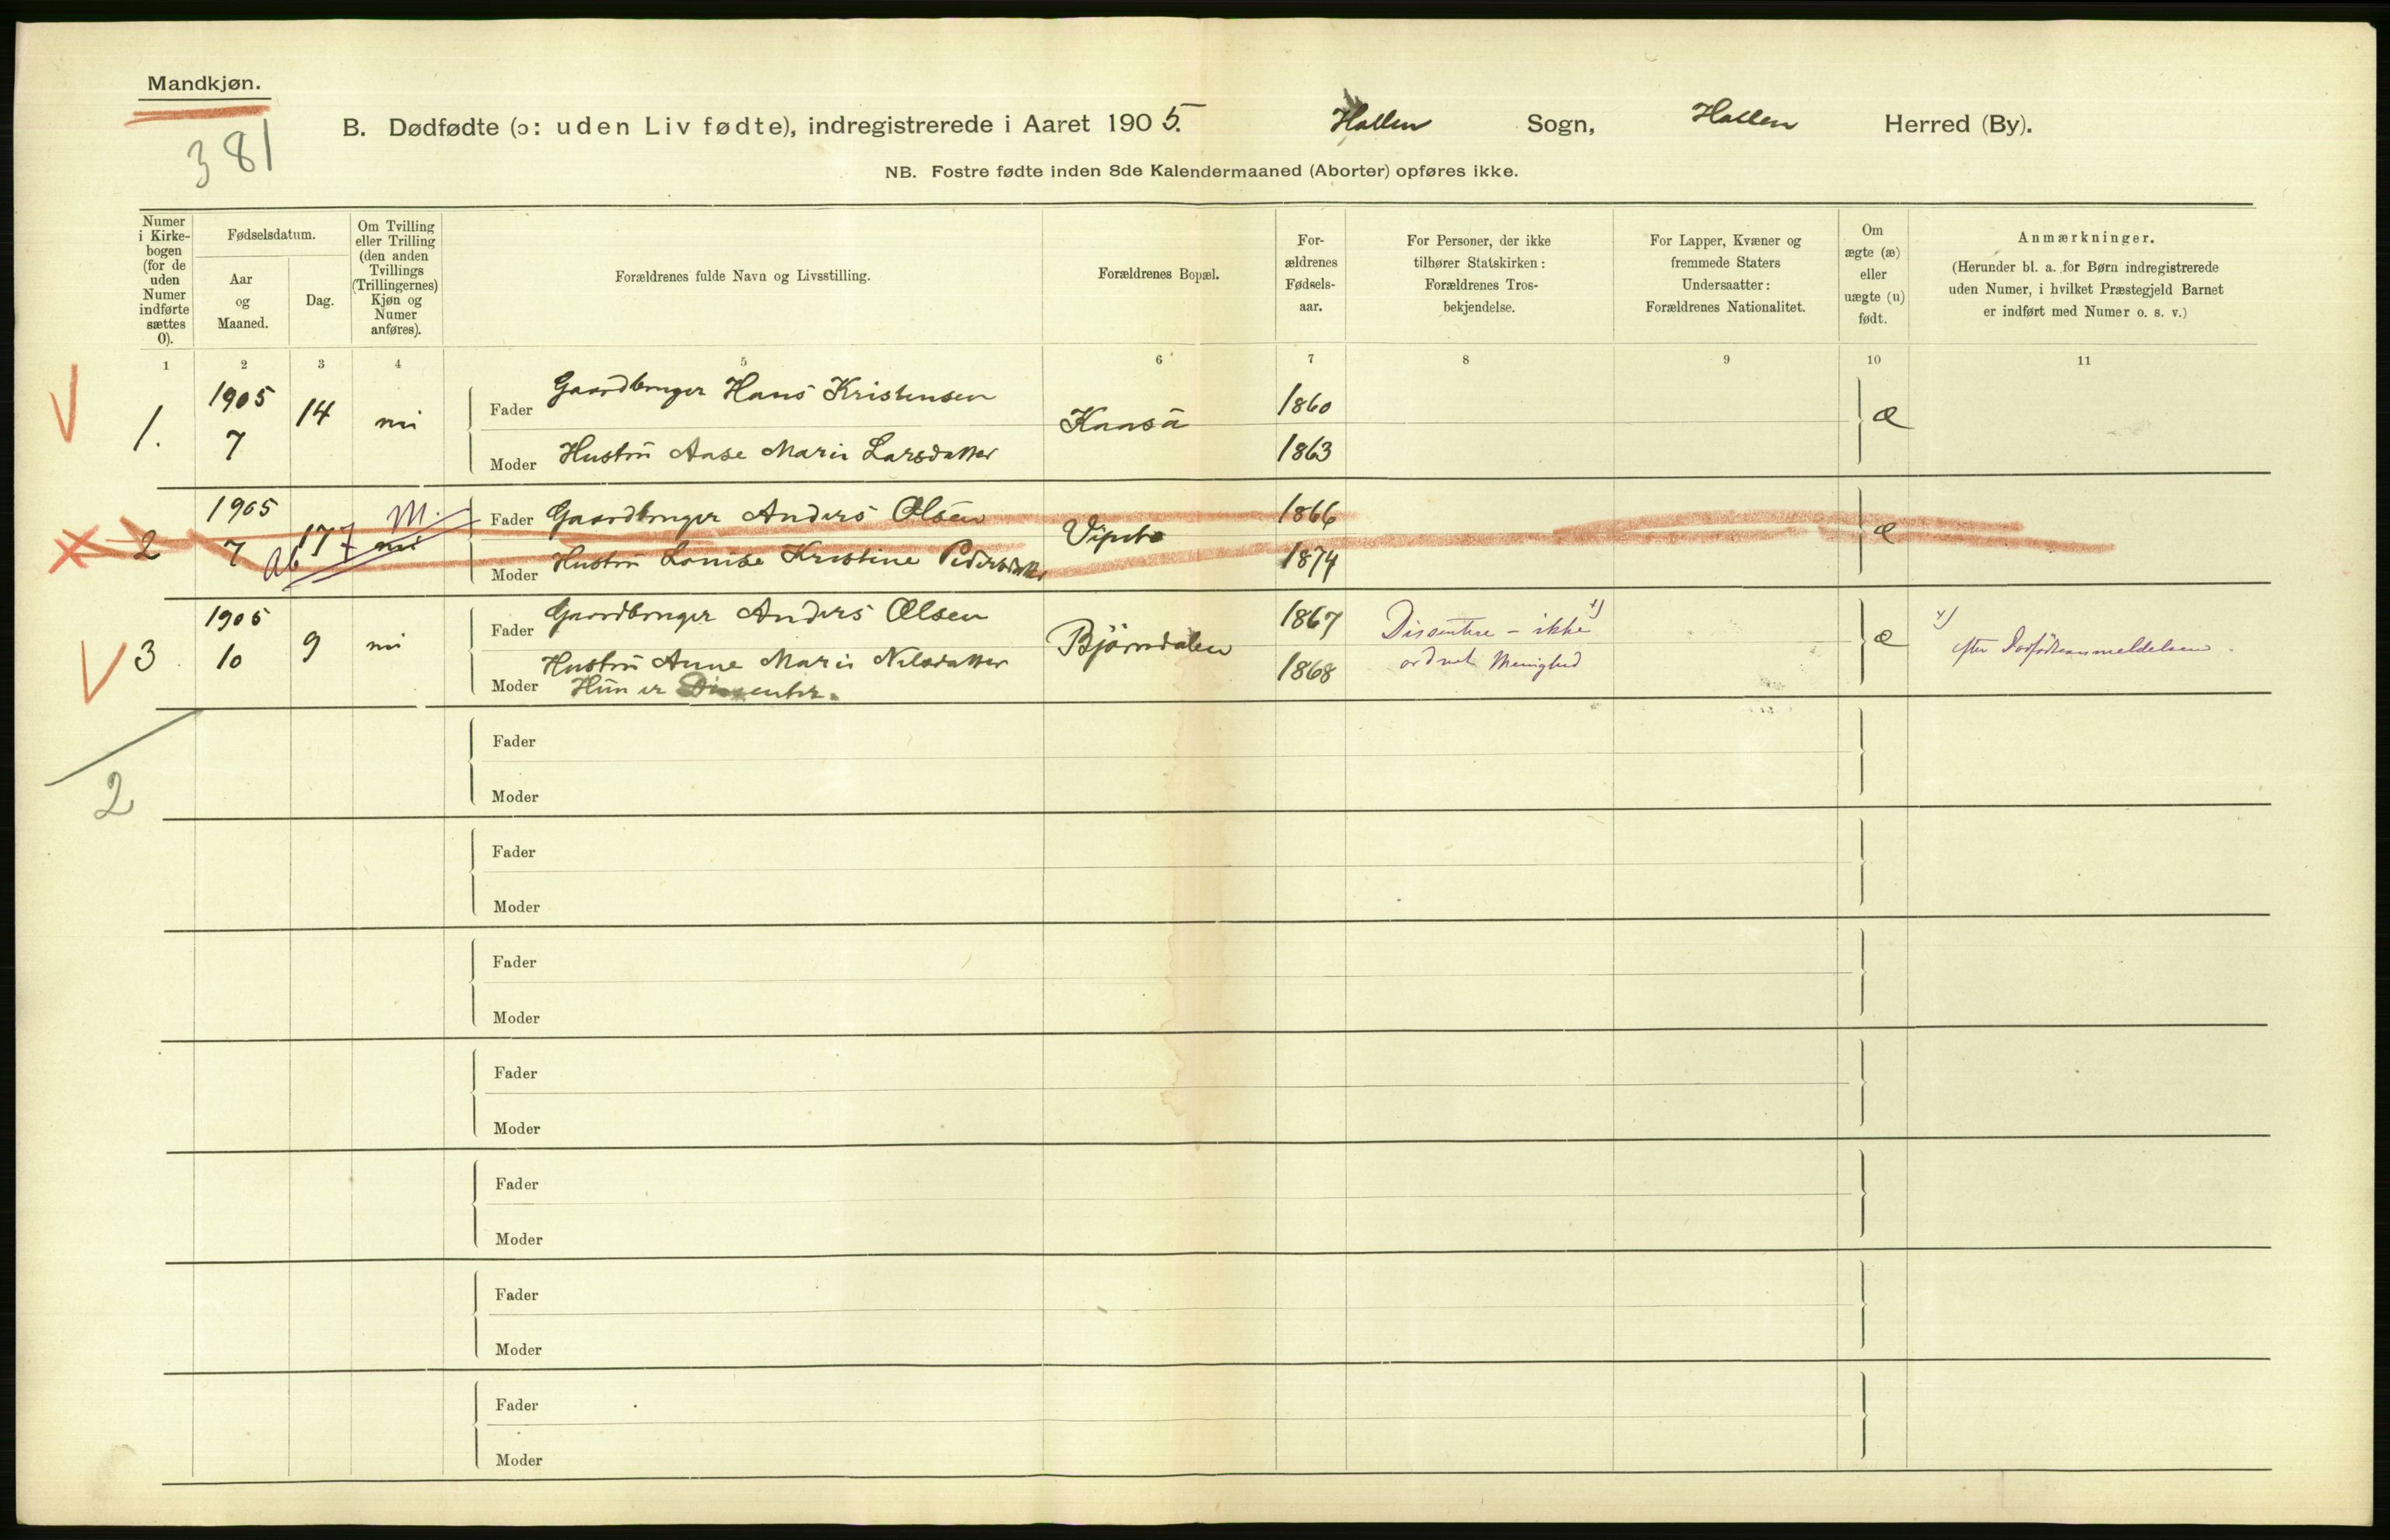 Mandkjøn.
381
B. Dødfødte (ɔ: uden Liv fødte), indregistrerede i Aaret 1905. Hallen Sogn, Hallen Herred (By).
NB. Fostre fødte inden 8de Kalendermaaned (Aborter) opføres ikke.
Numer i Kirke-bogen (for de uden Numer indførte sættes 0).
Fødselsdatum.
Aar og Maaned.
Dag.
Om Tvilling eller Trilling (den anden Tvillings (Trillingernes) Kjøn og Numer anføres).
Forældrenes fulde Navn og Livsstilling.
Forældrenes Bopæl.
For-ældrenes Fødsels-aar.
For Personer, der ikke tilhører Statskirken: Forældrenes Tros-bekjendelse.
For Lapper, Kvæner og fremmede Staters Undersaatter: Forældrenes Nationalitet.
Om ægte (æ) eller uægte (u) født.
Anmærkninger.
(Herunder bl. a. for Børn indregistrerede uden Numer, i hvilket Præstegjeld Barnet er indført med Numer o. s. v.)
1 2 3 4 5 6 7 8 9 10 11
1. 1905 7 14 nei Fader Gaardbruger Hans Kristensen Kaasa 1860 æ
Moder Hustru Aase Marie Larsdatter 1863
2 1905 7 17 Ab M. nei Fader Gaardbruger Anders Olsen Vipeto 1866 æ
Moder Hustru Louise Kristine Pedersdatter 1874
3 1905 10 9 nei Fader Gaardbruger Anders Olsen Björndalen 1867 Disentere - ikke x) æ x) efter Dødfødteanmeldelsen.
Moder Hustru Anne Marie Nilsdatter 1868 ordnet Menighed
Hun er Dissenter.
2
Fader
Moder
Fader
Moder
Fader
Moder
Fader
Moder
Fader
Moder
Fader
Moder
Fader
Moder